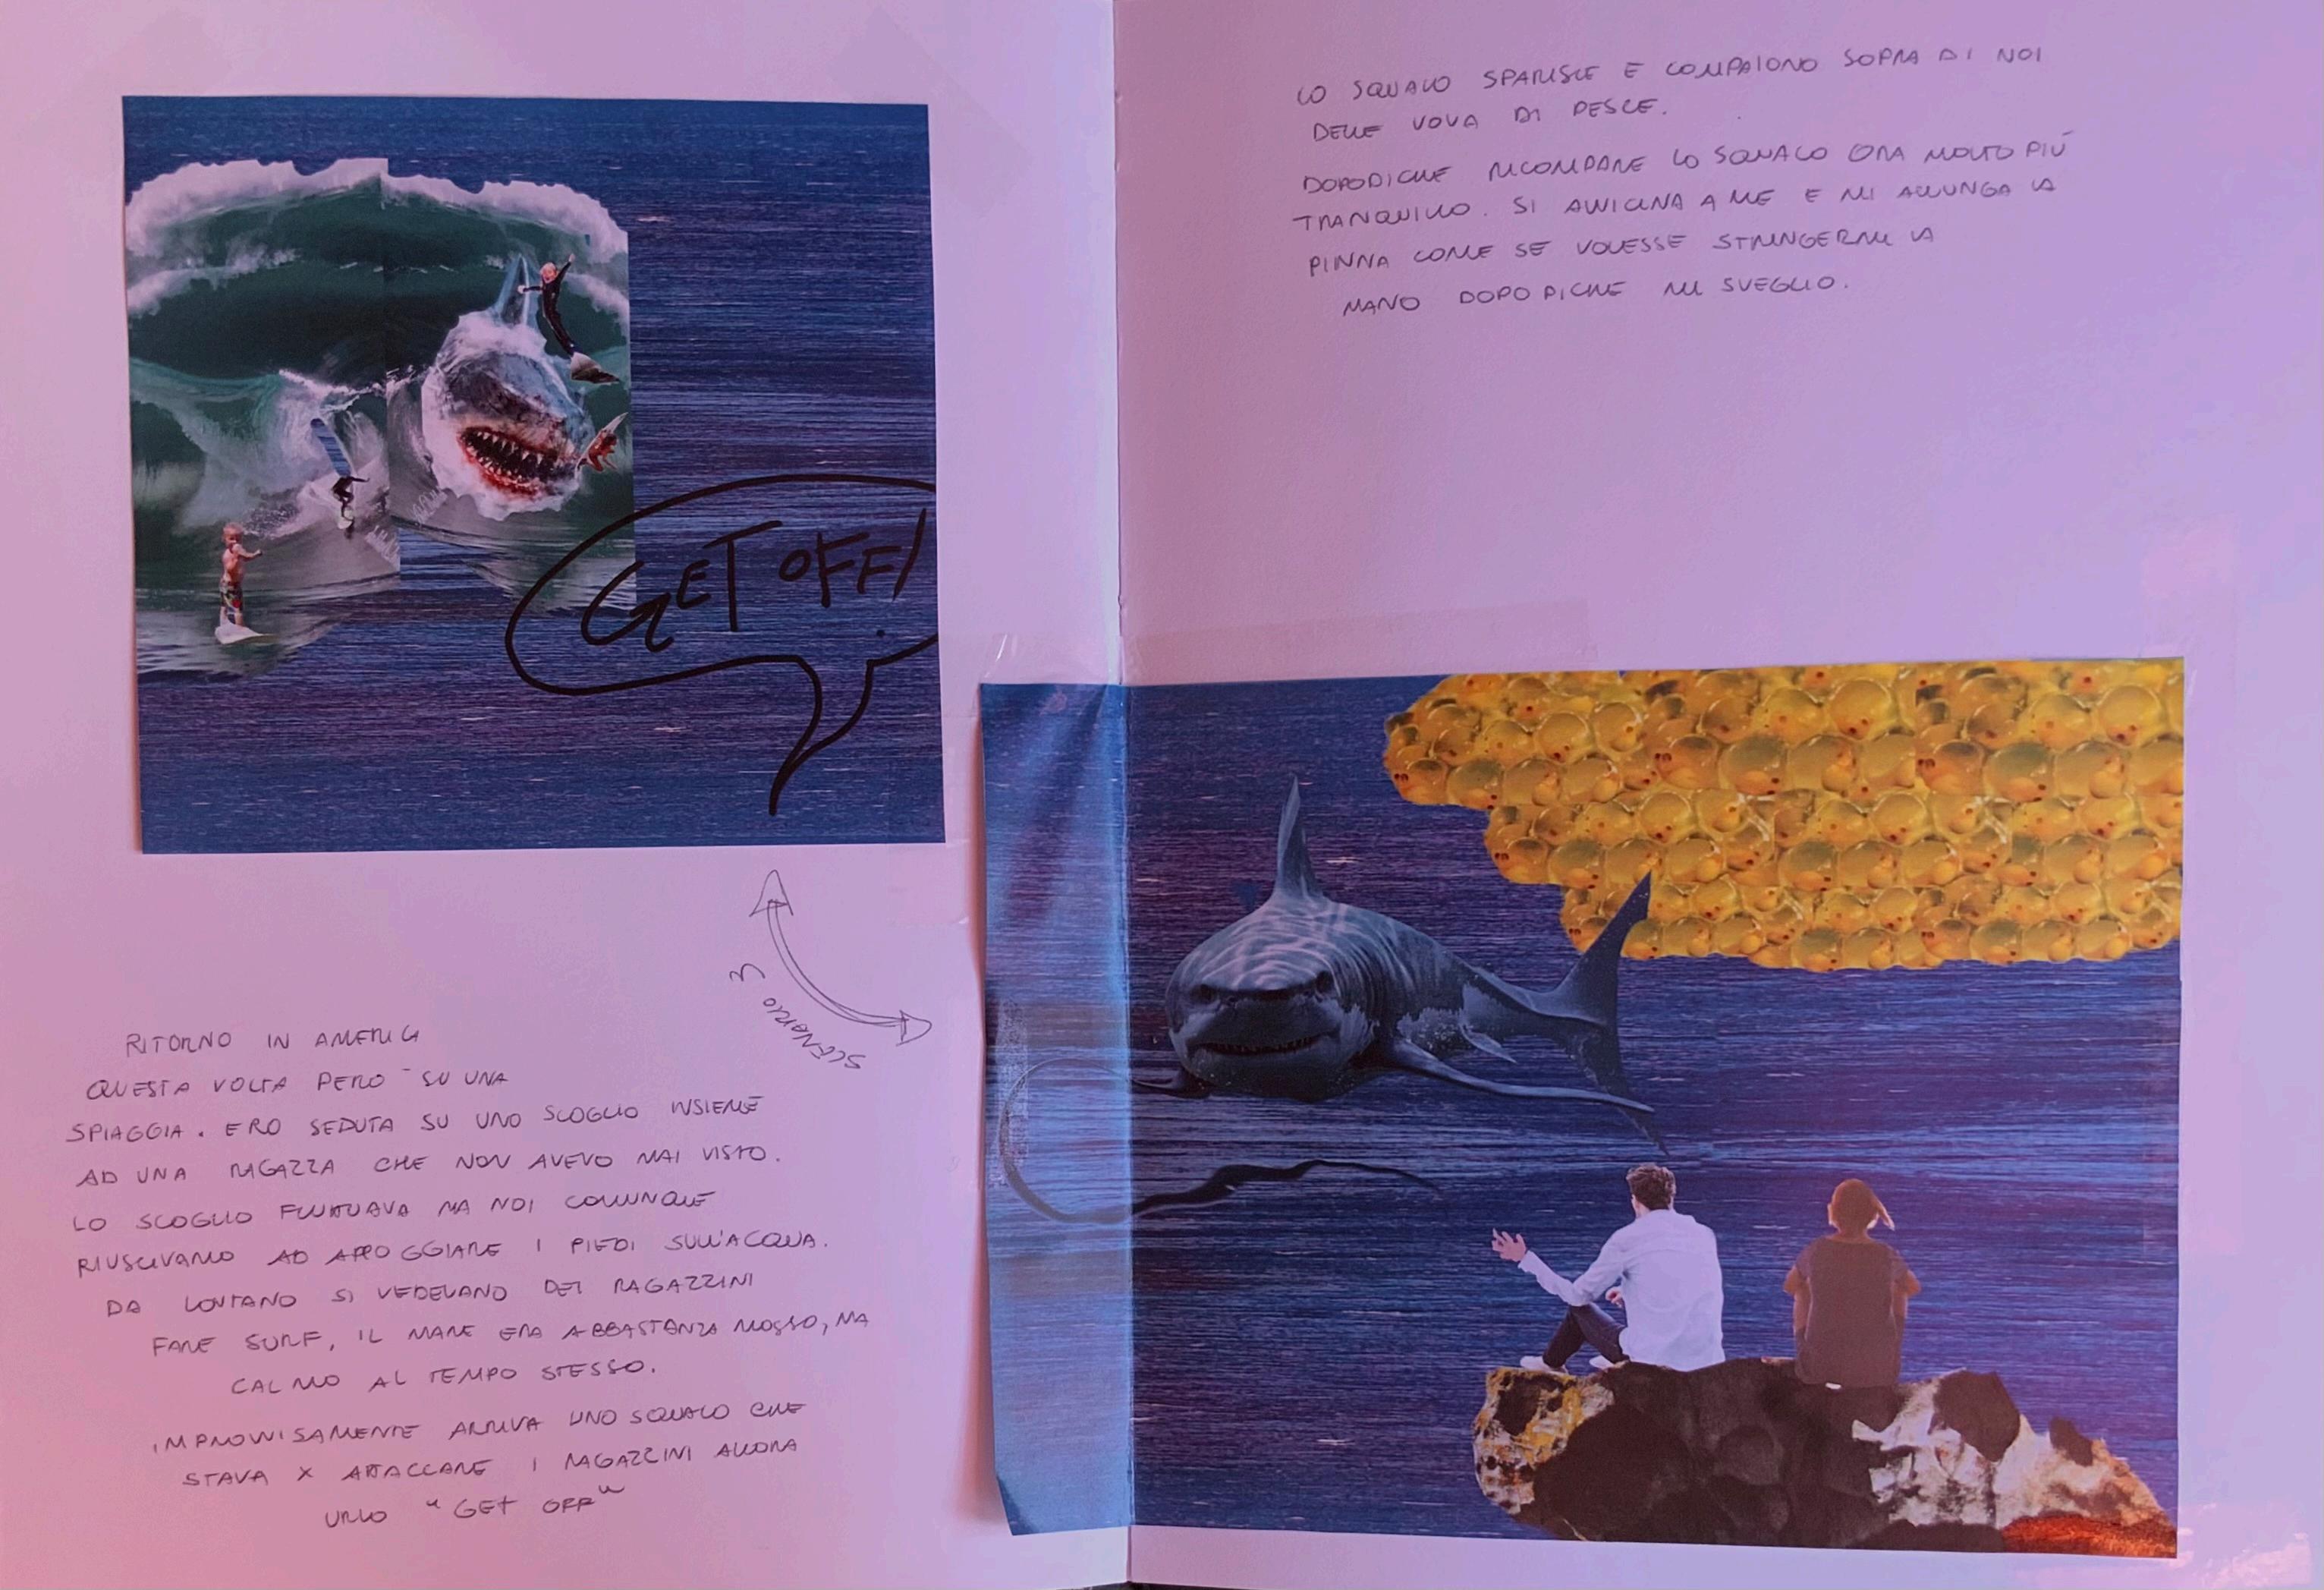 GET OFF!
SCENARIO 3
RITORNO IN AMERICA
QUESTA VOLTA PERÒ SU UNA
SPIAGGIA. ERO SEDUTA SU UNO SCOGLIO INSIEME
AD UNA RAGAZZA CHE NON AVEVO MAI VISTO.
LO SCOGLIO FLUTTUAVA MA NOI COMUNQUE
RIUSCIVAMO AD APPOGGIARE I PIEDI SULL'ACQUA.
DA LONTANO SI VEDEVANO DEI RAGAZZINI
FARE SURF, IL MARE ERA ABBASTANZA MOSSO, MA
CALMO AL TEMPO STESSO.
IMPROVVISAMENTE ARRIVA UNO SQUALO CHE
STAVA X ATTACCARE I RAGAZZINI ALLORA
URLO "GET OFF"
LO SQUALO SPARISCE E COMPAIONO SOPRA DI NOI
DELLE UOVA DI PESCE.
DOPODICHE RICOMPARE LO SQUALO ORA MOLTO PIÙ
TRANQUILLO. SI AVVICINA A ME E MI ALLUNGA LA
PINNA COME SE VOLESSE STRINGERMI LA
MANO DOPO DICHE MI SVEGLIO.